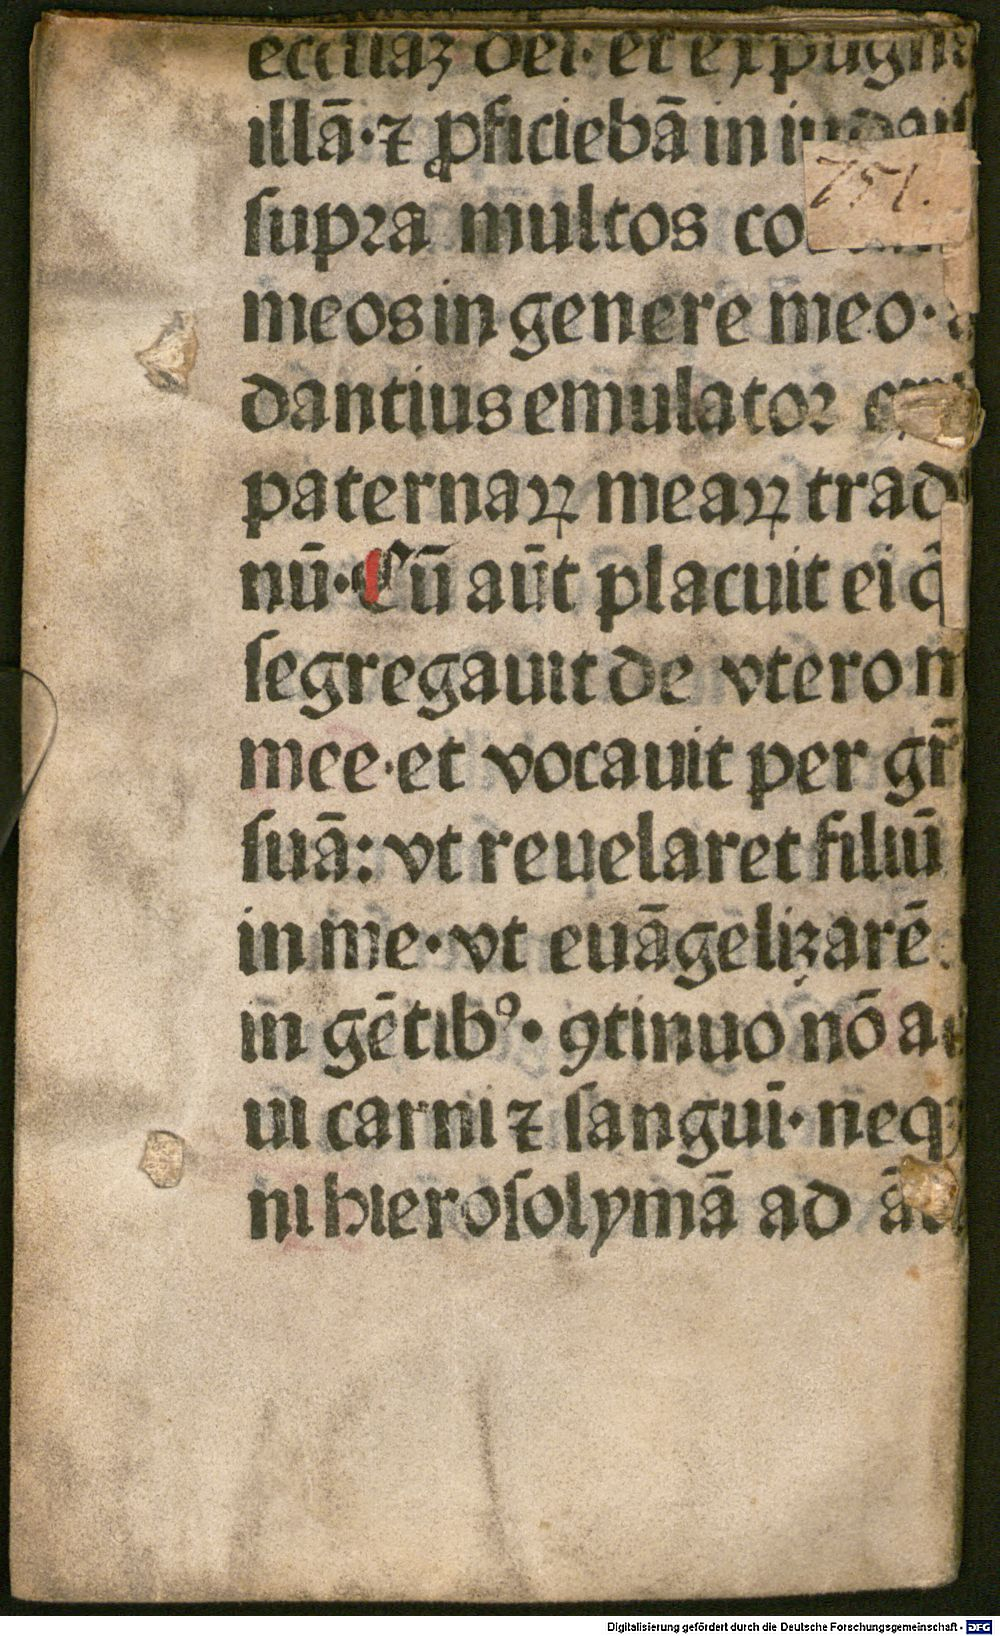 eccliaꝫ dei· et expugn
illā·⁊ ꝓficiebā in iudais
751.
supra multos co
meos in genere meo·
dantius emulator
paternaꝝ meaꝝ trad
nū·Cū aūt placuit ei q̄
segregauit de vtero m
mee·et vocauit per gr̄
suā: vt reuelaret filiū
in me·vt euāgelizarē
in gētibꝰ· ꝯtinuo nō a
ui carni ⁊ sanguī· neqꝫ
ni hierosolymā ad ā
Digitalisierung gefördert durch die Deutsche Forschungsgemeinschaft - DFG